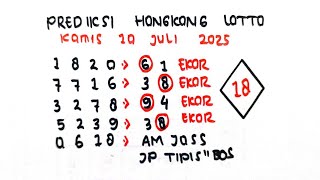 PREDIIKSI HONGKONG LOTTO
KAMIS 10 JULI 2025
1 8 2 0 » 6 1 EKOR
7 7 1 6 » 3 8 EKOR
3 2 7 8 » 9 4 EKOR
5 2 3 9 » 3 8 EKOR
0 6 1 8 » AM JOSS
JP TIPIS" BOS
18